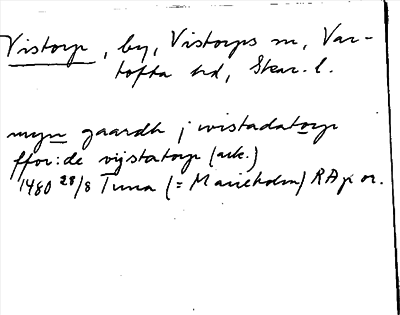 Vistorp, by, Vistorps sn, Var-
tofta hd, Skar. l.
myn gaardh j wistadatorp
ffor:de vijstatorp (ark.)
1480 28/8 Tuna (= Marieholm) RAp or.